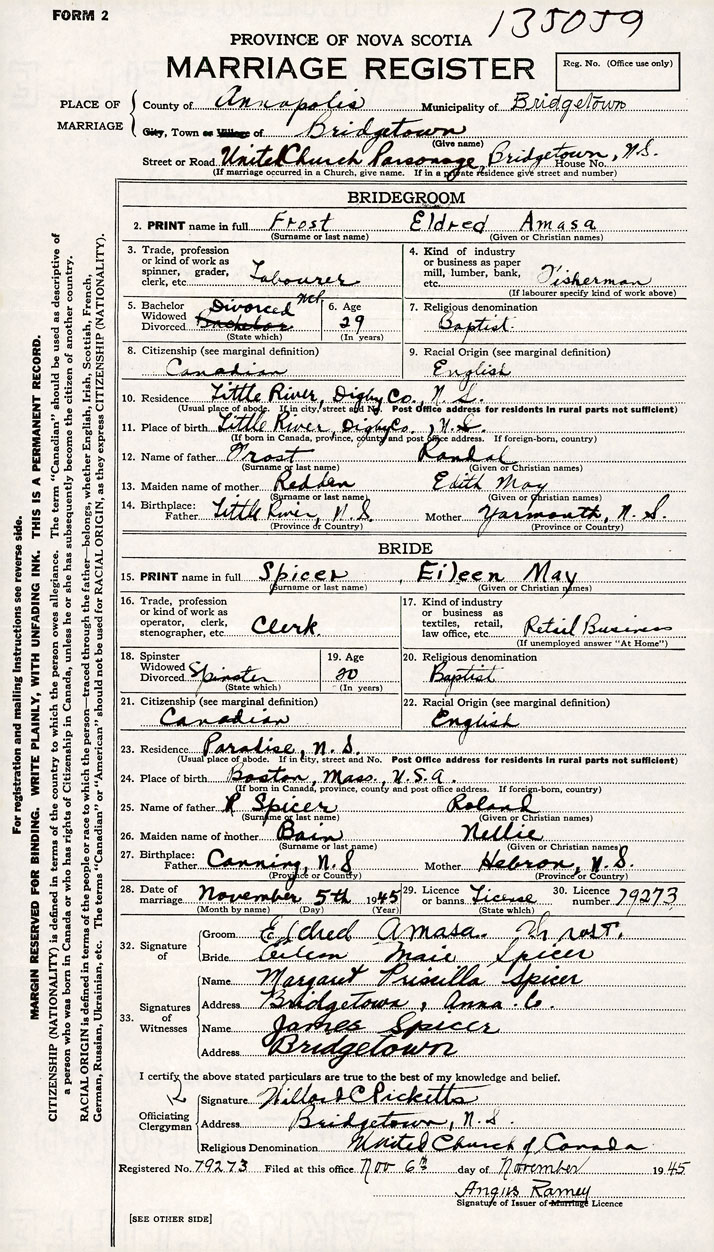 FORM 2
135059
PROVINCE OF NOVA SCOTIA
MARRIAGE REGISTER
Reg. No. (Office use only)
PLACE OF MARRIAGE
County of Annapolis Municipality of Bridgetown
City, Town or Village of Bridgetown
(Give name)
Street or Road United Church Parsonage, Bridgetown, N.S. House No.
(If marriage occurred in a Church, give name. If in a private residence give street and number)
BRIDEGROOM
2. PRINT name in full Frost Eldred Amasa
(Surname or last name) (Given or Christian names)
3. Trade, profession or kind of work as spinner, grader, clerk, etc. Labourer
4. Kind of industry or business as paper mill, lumber, bank, etc. Fisherman
(If labourer specify kind of work above)
5. Bachelor Widowed Divorced Divorced Bachelor
(State which)
6. Age 29
(In years)
7. Religious denomination
Baptist
8. Citizenship (see marginal definition)
Canadian
9. Racial Origin (see marginal definition)
English
10. Residence Little River, Digby Co., N.S.
(Usual place of abode. If in city, street and No. Post Office address for residents in rural parts not sufficient)
11. Place of birth Little River, Digby Co., N.S.
(If born in Canada, province, county and post office address. If foreign-born, country)
12. Name of father Frost Randal
(Surname or last name) (Given or Christian names)
13. Maiden name of mother Redden Edith May
(Surname or last name) (Given or Christian names)
14. Birthplace: Father Little River, N.S. Mother Yarmouth, N.S.
(Province or Country) (Province or Country)
BRIDE
15. PRINT name in full Spicer Eileen May
(Surname or last name) (Given or Christian names)
16. Trade, profession or kind of work as operator, clerk, stenographer, etc. Clerk
17. Kind of industry or business as textiles, retail, law office, etc. Retail Business
(If unemployed answer "At Home")
18. Spinster Widowed Divorced Spinster
(State which)
19. Age 20
(In years)
20. Religious denomination
Baptist
21. Citizenship (see marginal definition)
Canadian
22. Racial Origin (see marginal definition)
English
23. Residence Paradise, N.S.
(Usual place of abode. If in city, street and No. Post Office address for residents in rural parts not sufficient)
24. Place of birth Boston, Mass., U.S.A.
(If born in Canada, province, county and post office address. If foreign-born, country)
25. Name of father R Spicer Roland
(Surname or last name) (Given or Christian names)
26. Maiden name of mother Bain Nellie
(Surname or last name) (Given or Christian names)
27. Birthplace: Father Canning, N.S Mother Hebron, N.S.
(Province or Country) (Province or Country)
28. Date of marriage November 5th 1945
(Month by name) (Day) (Year)
29. Licence or banns License
(State which)
30. Licence number 79273
32. Signature of
Groom Eldred Amasa. Frost.
Bride Eileen Maie Spicer
33. Signatures of Witnesses
Name Margaret Priscilla Spicer
Address Bridgetown, Anna. Co.
Name James Spicer
Address Bridgetown
I certify the above stated particulars are true to the best of my knowledge and belief.
Officiating Clergyman
Signature Willard C Picketts
Address Bridgetown, N.S.
Religious Denomination United Church of Canada
Registered No. 79273 Filed at this office Nov 6th day of November 1945
Angus Ramey
Signature of Issuer of Marriage Licence
[SEE OTHER SIDE]
For registration and mailing instructions see reverse side.
MARGIN RESERVED FOR BINDING. WRITE PLAINLY, WITH UNFADING INK. THIS IS A PERMANENT RECORD.
CITIZENSHIP (NATIONALITY) is defined in terms of the country to which the person owes allegiance. The term "Canadian" should be used as descriptive of
a person who was born in Canada or who has rights of Citizenship in Canada, unless he or she has subsequently become the citizen of another country.
RACIAL ORIGIN is defined in terms of the people or race to which the person—traced through the father—belongs, whether English, Irish, Scottish, French,
German, Russian, Ukrainian, etc. The terms "Canadian" or "American" should not be used for RACIAL ORIGIN, as they express CITIZENSHIP (NATIONALITY).